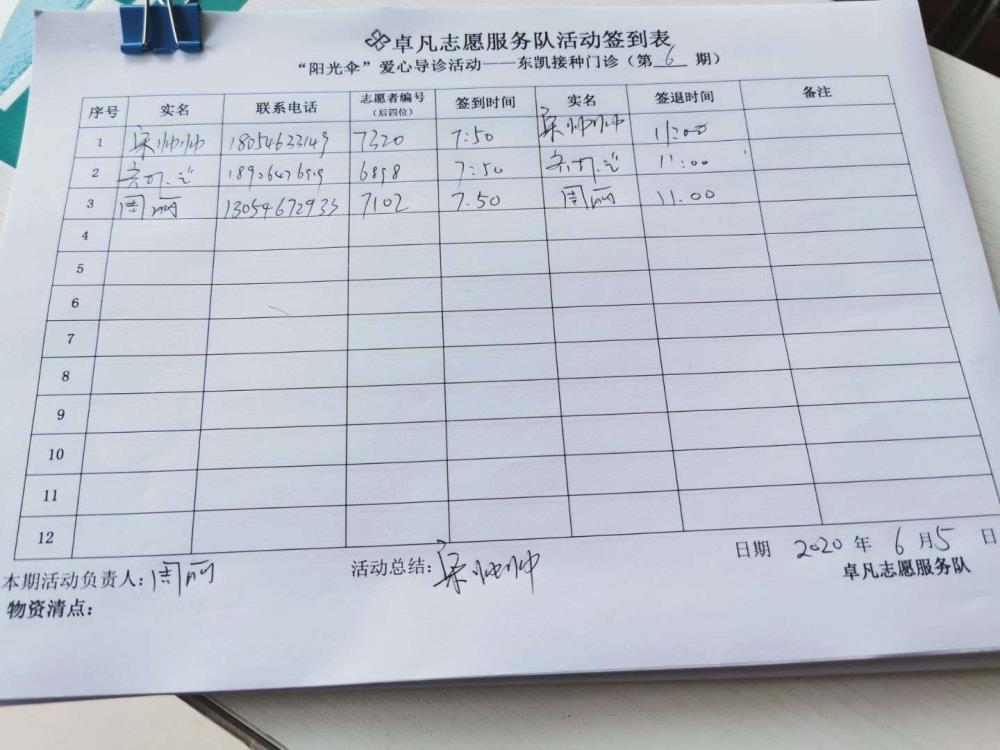 卓凡志愿服务队活动签到表
“阳光伞”爱心导诊活动——东凯接种门诊（第6期）
序号 实名 联系电话 志愿者编号（后四位） 签到时间 实名 签退时间 备注
1 梁帅帅 18054633149 7320 7:50 梁帅帅 11:00
2 6898 7:50 11:00
3 周丽 13054672933 7102 7.50 周丽 11.00
4
5
6
7
8
9
10
11
12
本期活动负责人：周丽 活动总结：梁帅帅 日期 2020年6月5日
物资清点： 卓凡志愿服务队